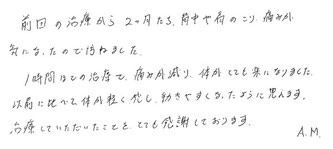 前回の治療から2ヶ月たち、背中や肩のこり、痛みが
気になったので訪ねました。
1時間ほどの治療で、痛みが減り、体がとても楽になりました。
以前に比べて体が軽く感じ、動きやすくなったように思えます。
治療していただいたことを、とても感謝しております。
A.M.